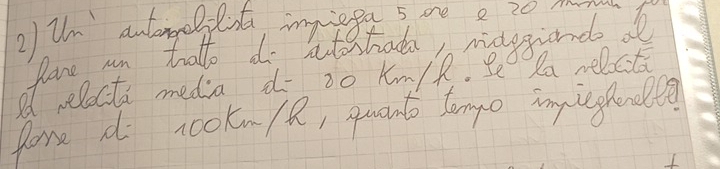 2) Un' automobilista impiega 5 ore e 20 minuti per
fare un tratto di autostrada, viaggiando al
la velocità media di 80 Km/h. Se la velocità
fosse di 100 Km/h, quanto tempo impiegherebbe?